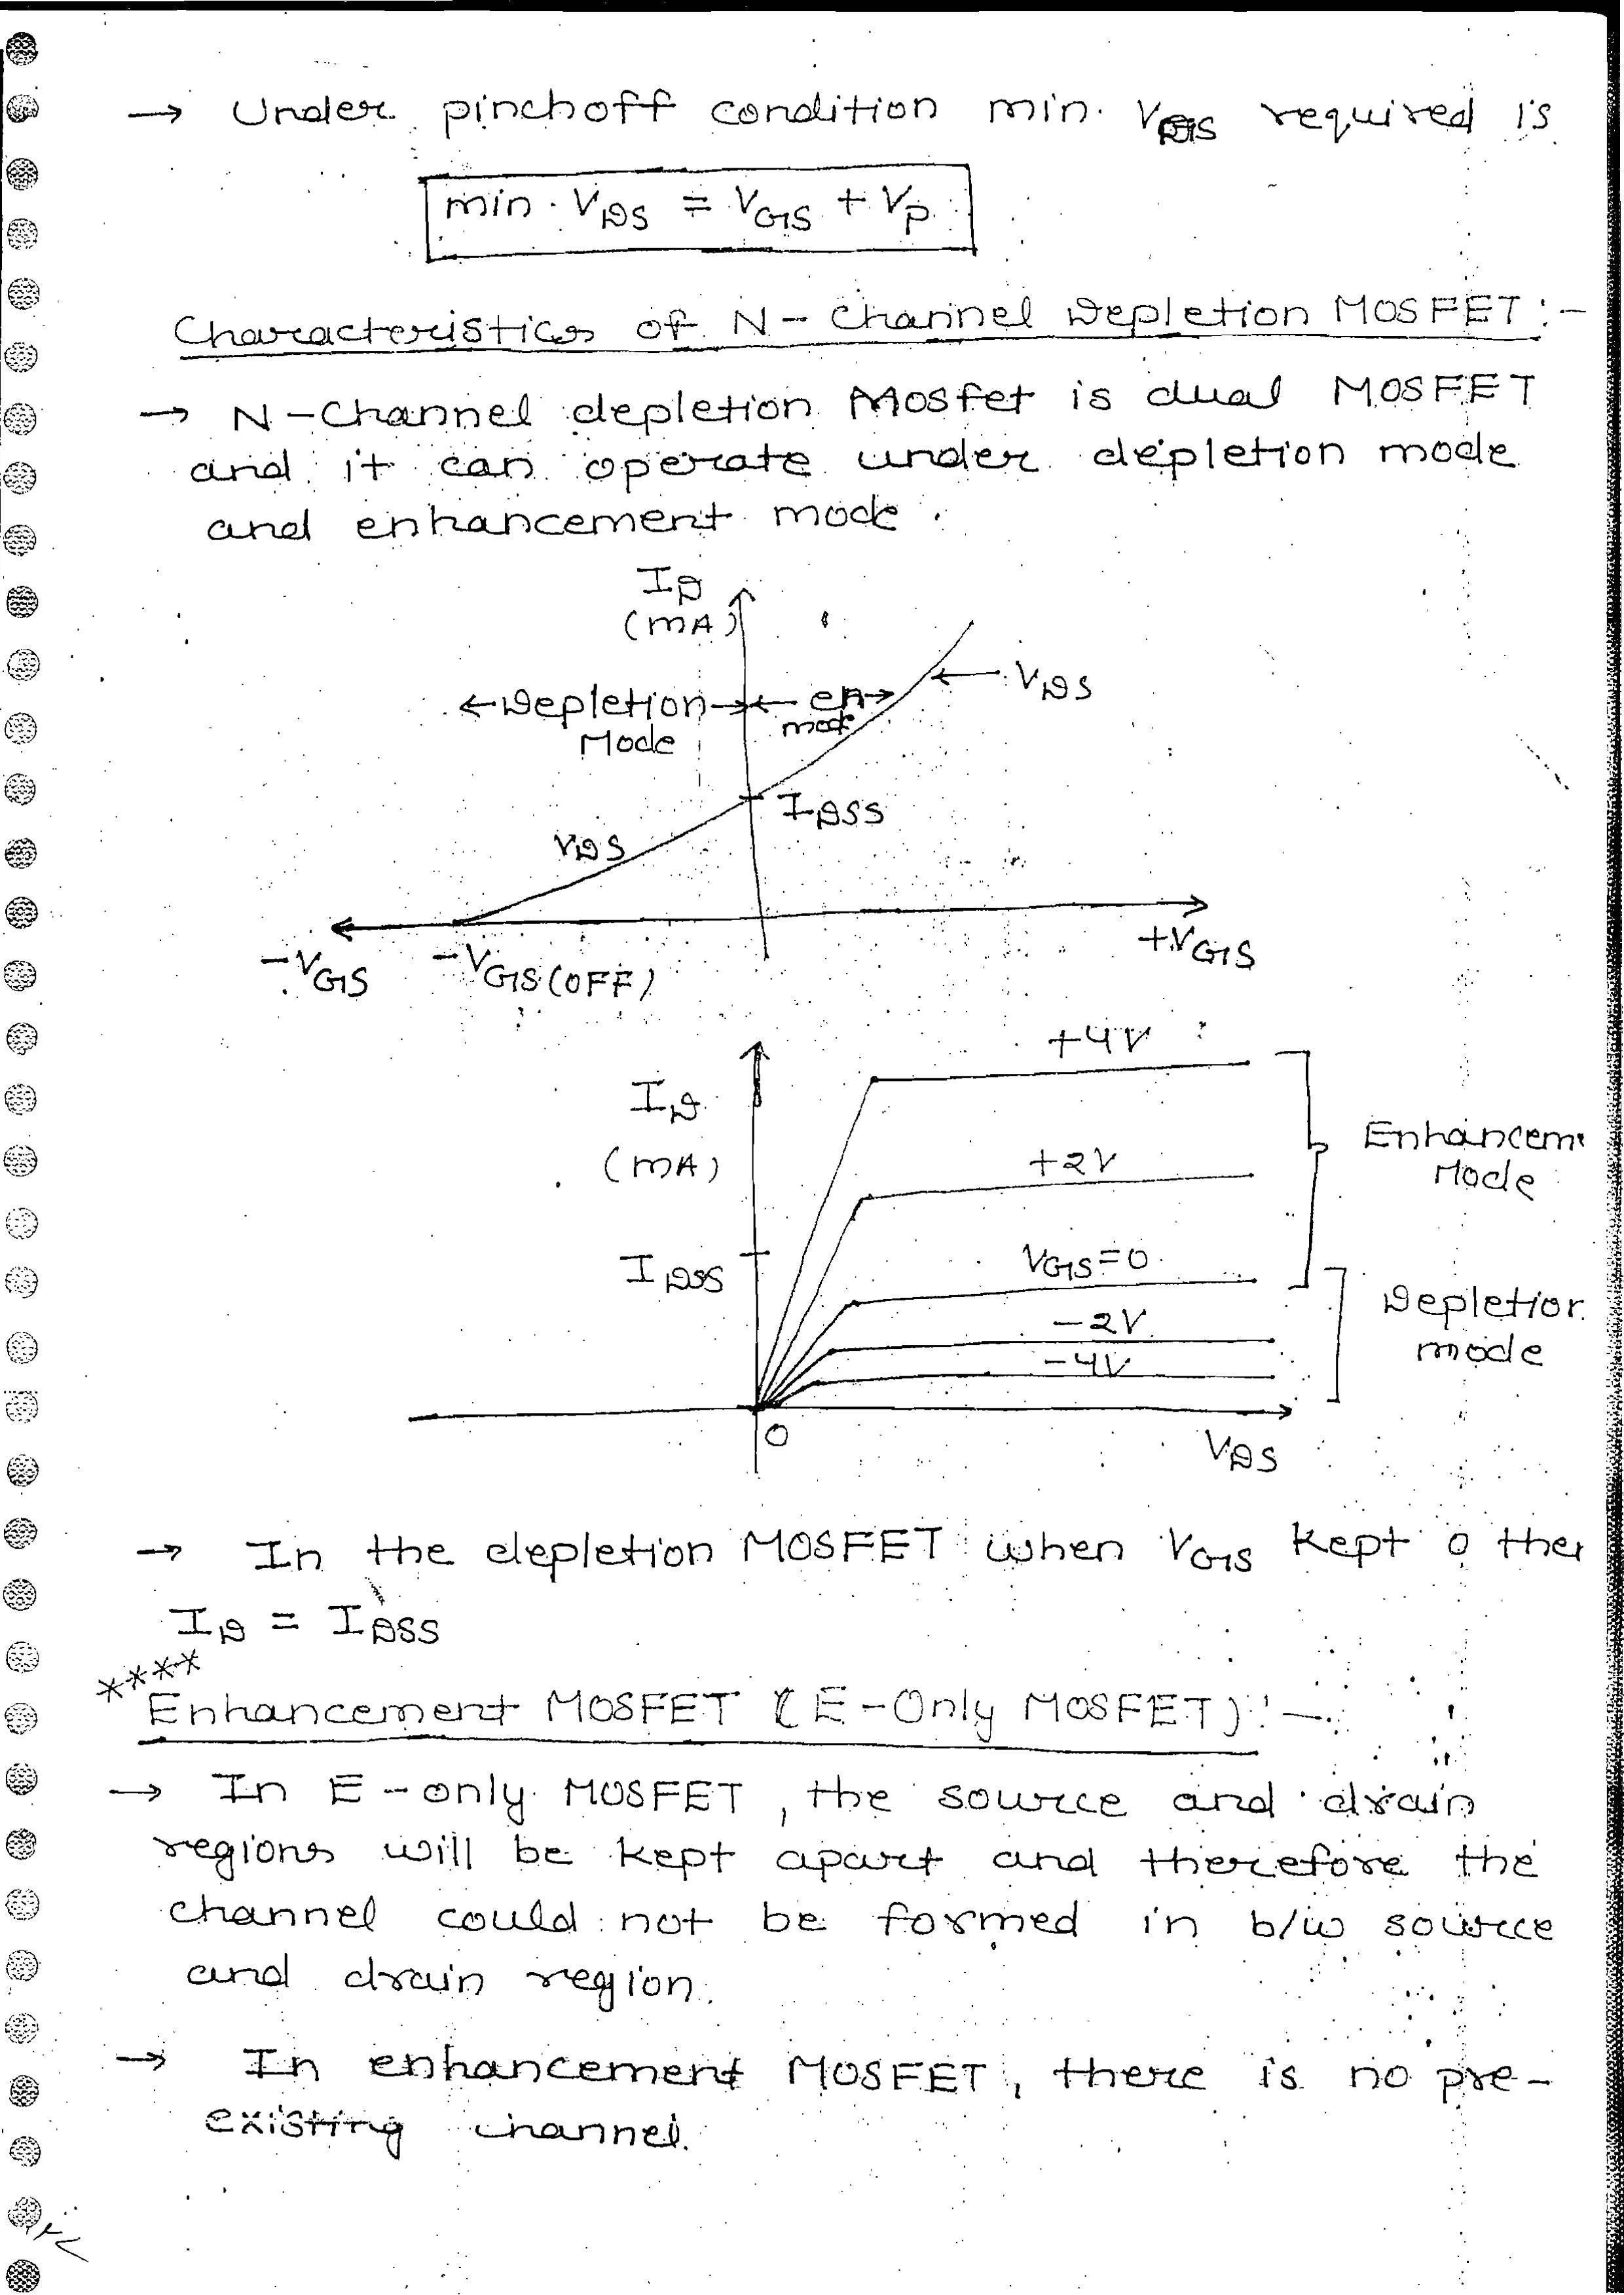 → Under pinchoff condition min. VDS required is
min. VDS = VGS + VP
Characteristics of N-Channel Depletion MOSFET :-
→ N-Channel depletion Mosfet is dual MOSFET
and it can operate under depletion mode
and enhancement mode.
ID
(mA)
←Depletion→ ← en→
Mode mode
← VDS
IDSS
VDS
-VGS -VGS(OFF) +VGS
+4V
ID
(mA)
+2V
Enhancem
Mode
IDSS
VGS=0
-2V
-4V
Depletion
mode
0
VDS
→ In the depletion MOSFET when VGS kept 0 then
ID = IDSS
****
Enhancement MOSFET (E-Only MOSFET) :-
→ In E-only MOSFET, the source and drain
regions will be kept apart and therefore the
channel could not be formed in b/w source
and drain region.
→ In enhancement MOSFET, there is no pre-
existing channel.